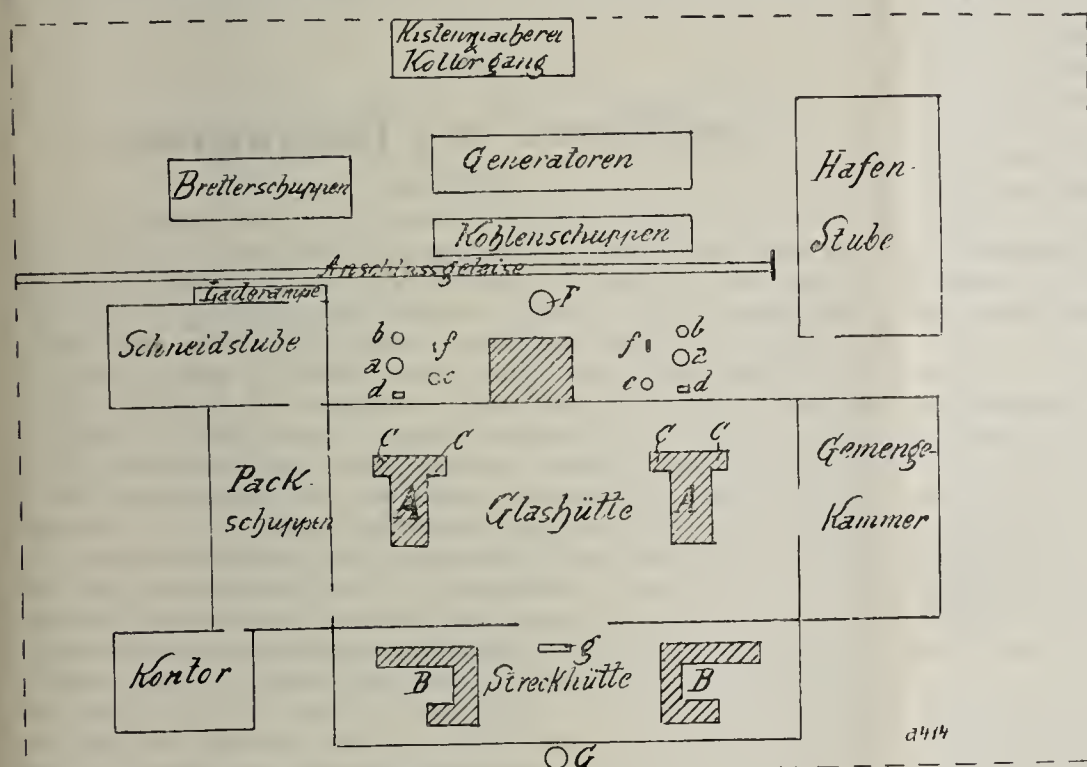 Kistenmacherei
&
Kollergang
Generatoren
Bretterschuppen
Hafen-
Stube
Kohlenschuppen
Anschlussgeleise
Laderampe
F
Schneidstube
b
f
a
c
d
f
b
a
c
d
C
C
C
C
Pack-
schuppen
A
Glashütte
A
Gemenge-
Kammer
g
Kontor
B
Streckhütte
B
G
a414